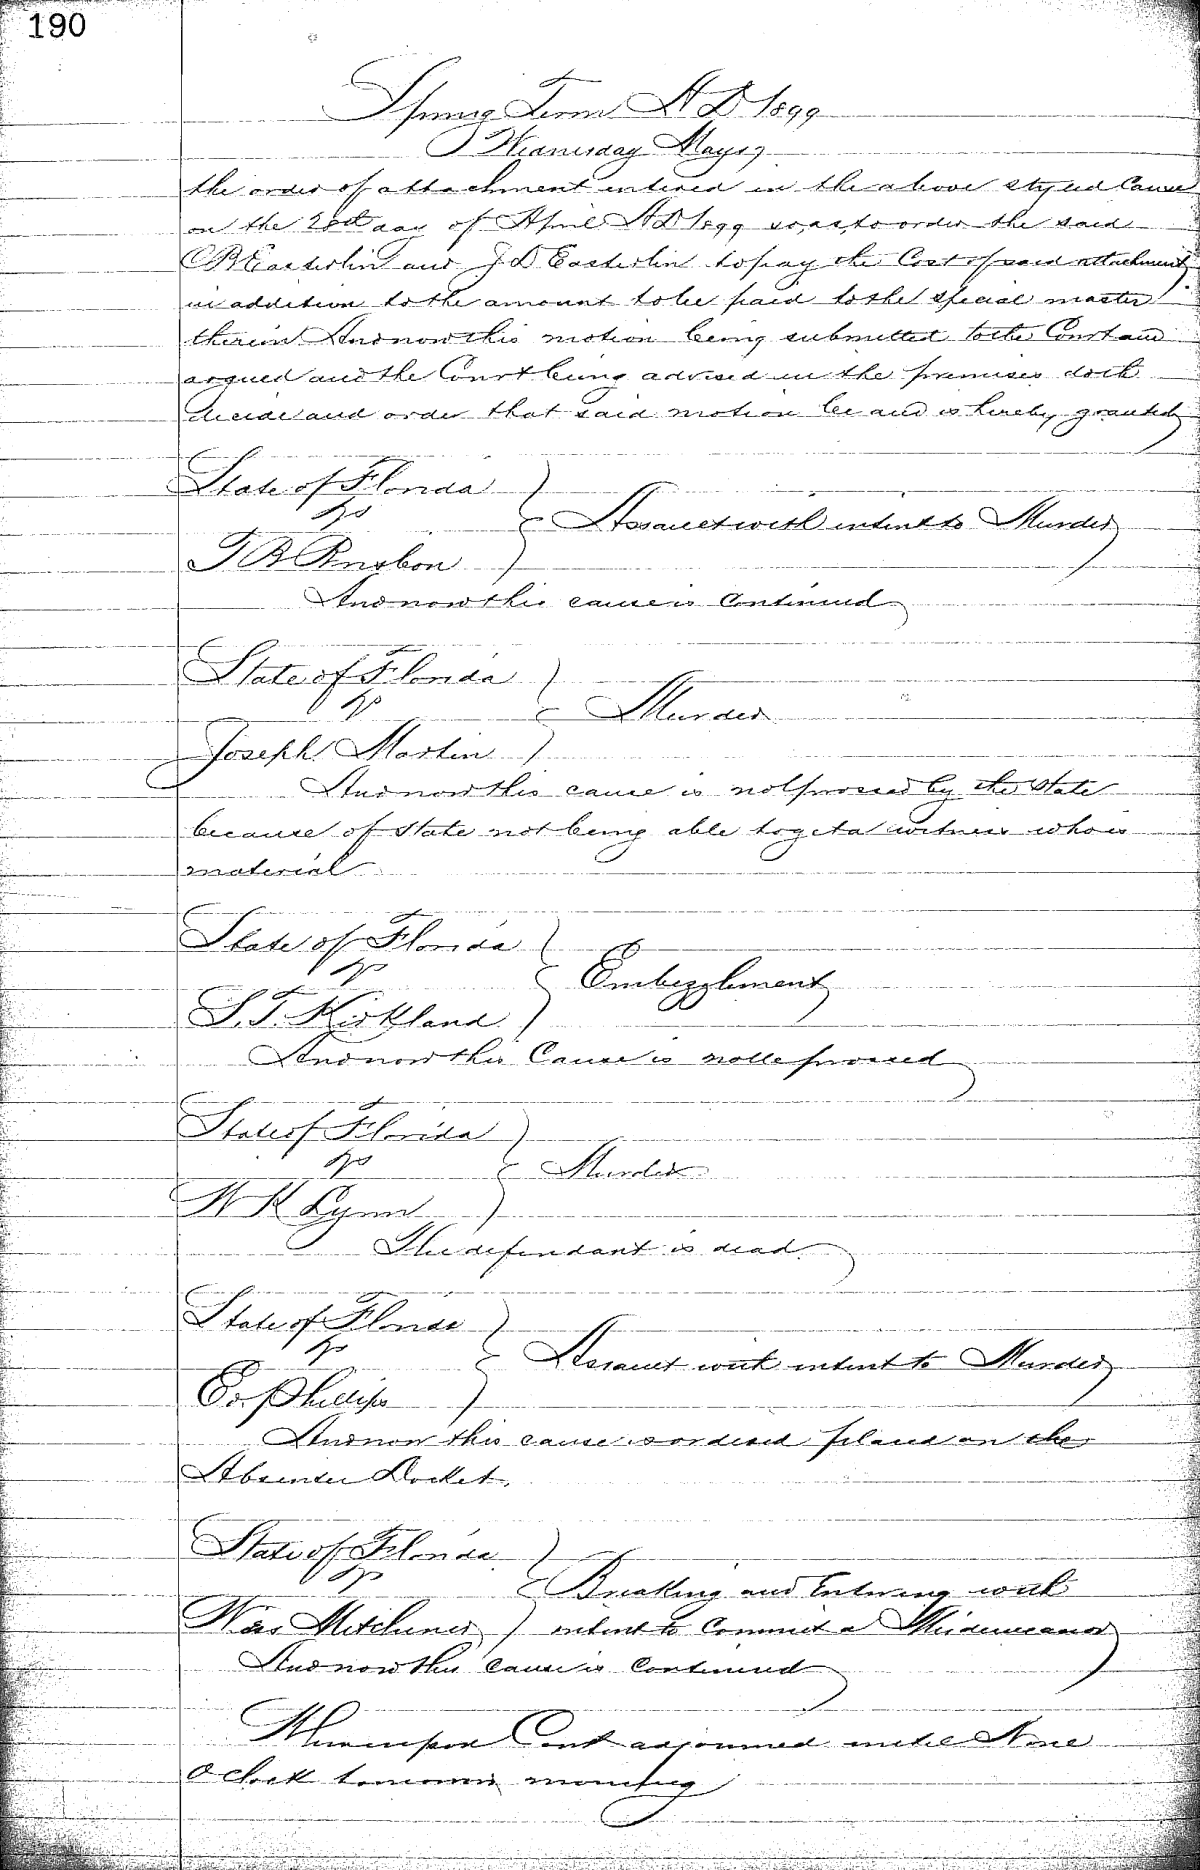 190
Spring Term A D 1899
Wednesday May 17
the order of attachment entered in the above styled Cause
on the 28th day of April A D 1899 so, as, to order the said
C B Easterlin and J. D Easterlin to pay the Cost of said attachment
in addition to the amount to be paid to the special master
therein And now this motion being submitted to the Court and
argued and the Court being advised in the premises doth
decide and order that said motion be and is hereby granted
State of Florida
vs
Assault with intent to Murder
T B
And now this cause is Continued
State of Florida
vs
Murder
Joseph Martin
And now this cause is nolprossed by the State
because of State not being able to get a witness who is
material
State of Florida
vs
Embezzlement
S. T. Kirkland
And now this Cause is nolle prossed
State of Florida
vs
Murder
W K Lynn
The defendant is dead.
State of Florida
vs
Assault with intent to Murder
Phillips
And now this cause is ordered placed on the
Absentee Docket.
State of Florida
vs
Breaking and Entering with
intent to Commit a Misdemeanor
And now this Cause is Continued
Whereupon Court adjourned until Nine
O clock tomorrow morning